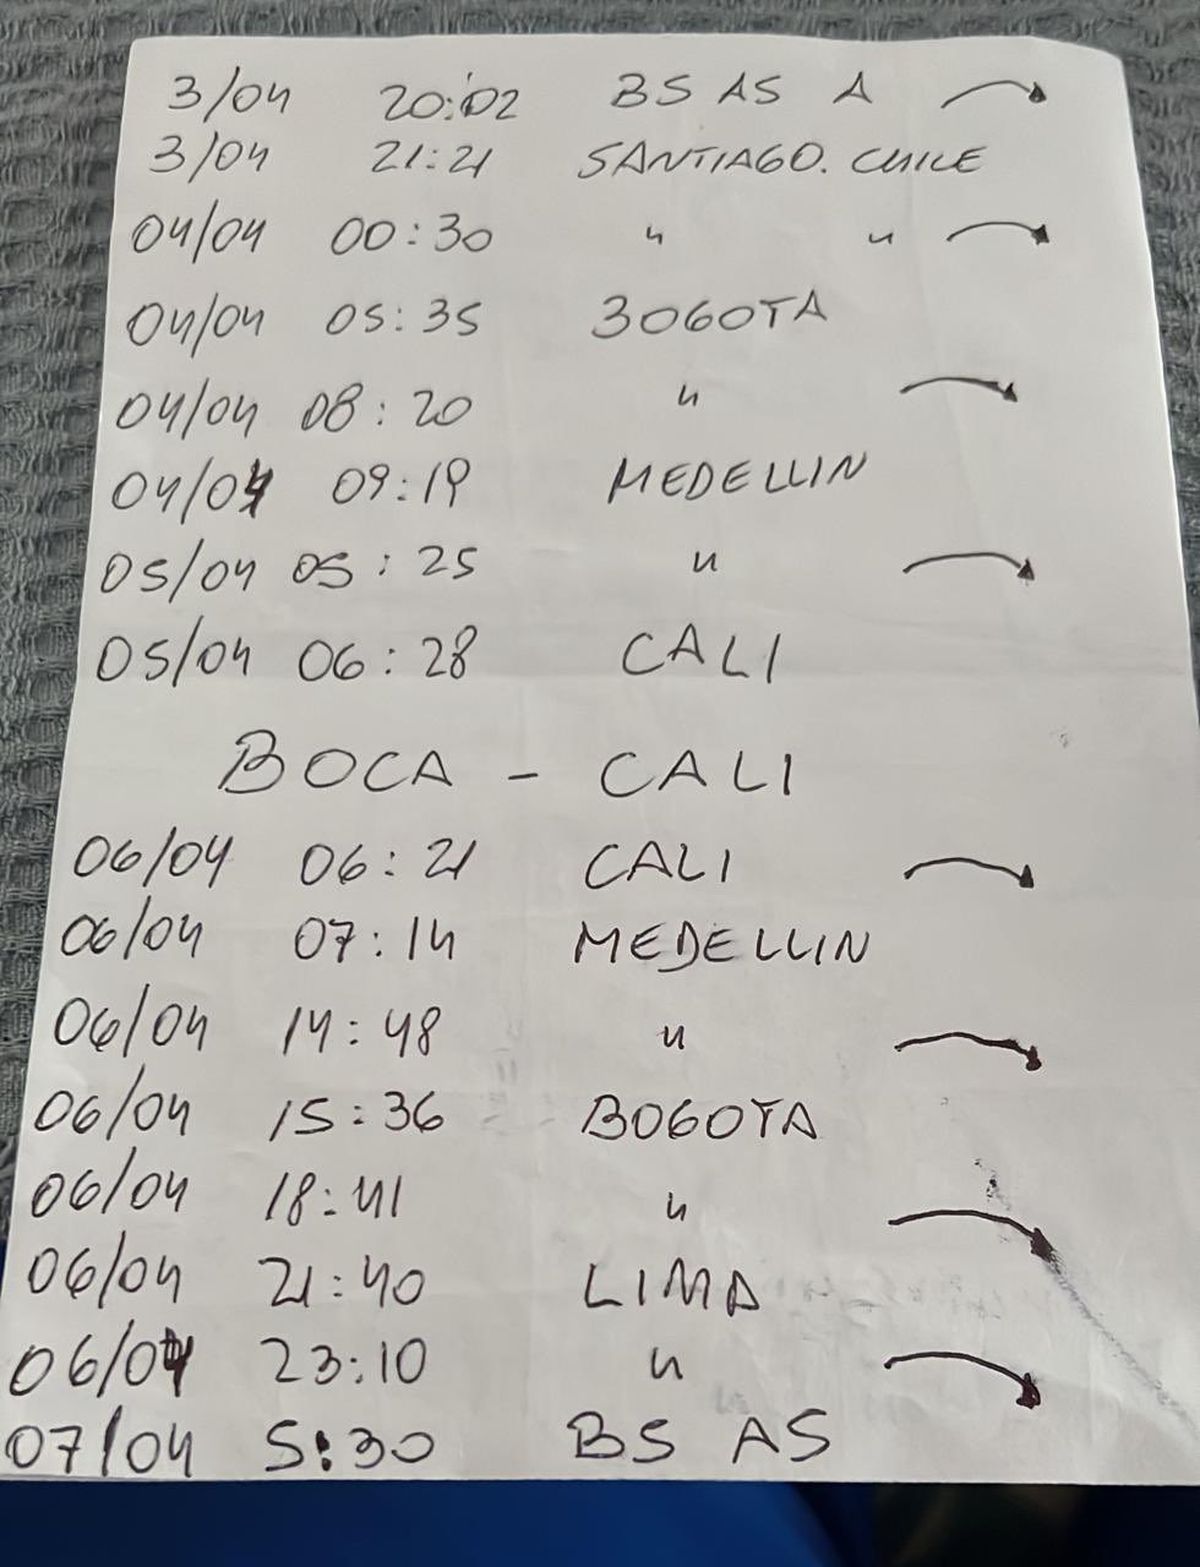 3/04 20:02 BS AS A →
3/04 21:21 SANTIAGO. CHILE
04/04 00:30 " " →
04/04 05:35 BOGOTA
04/04 08:20 " →
04/04 09:19 MEDELLIN
05/04 05:25 " →
05/04 06:28 CALI
BOCA - CALI
06/04 06:21 CALI →
06/04 07:14 MEDELLIN
06/04 14:48 " →
06/04 15:36 BOGOTA
06/04 18:41 " →
06/04 21:40 LIMA
06/04 23:10 " →
07/04 5:30 BS AS